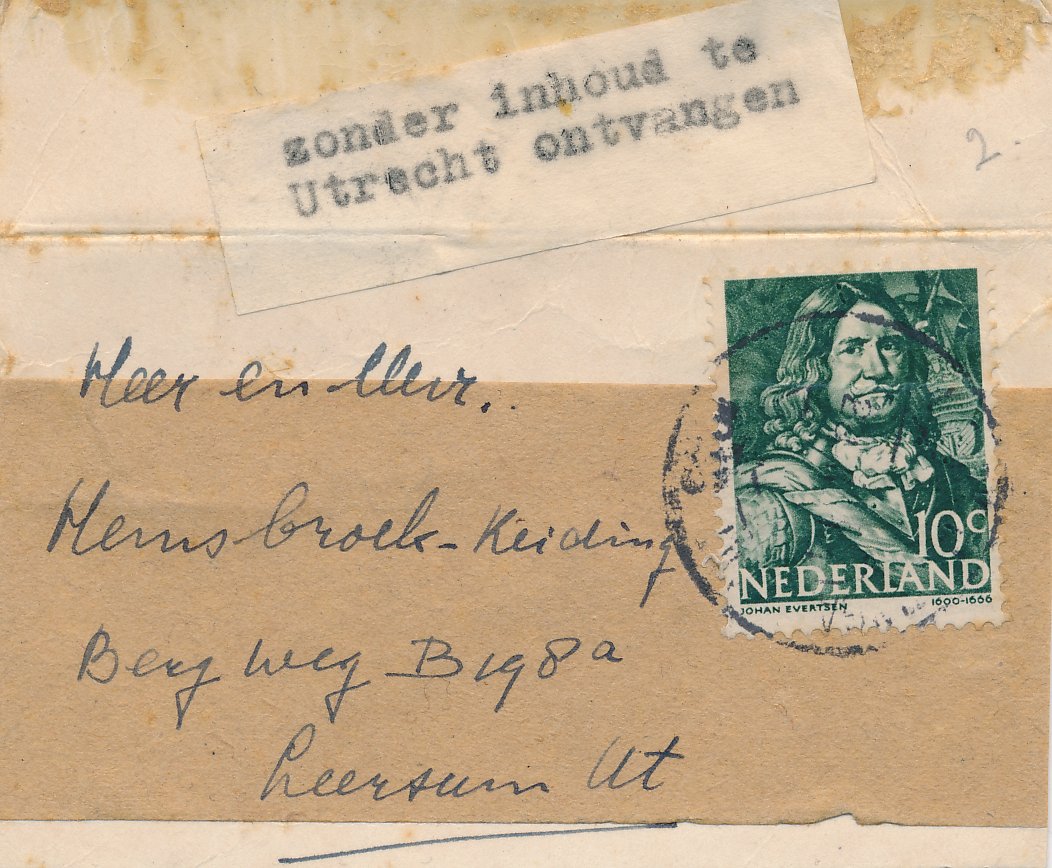 zonder inhoud te
Utrecht ontvangen
2.
Heer en Mevr.
Hemsbroek-Keiding
Bergweg B198a
Leersum Ut
10c
NEDERLAND
JOHAN EVERTSEN 1600-1666